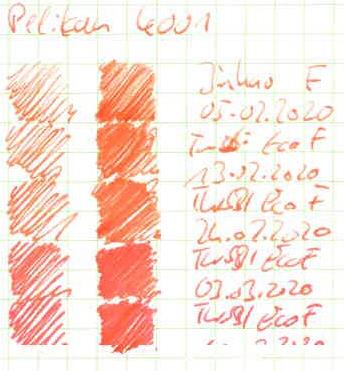 Pelikan 4001
Jinhao F
05.02.2020
Eco F
13.02.2020
TWSBI Eco F
24.02.2020
TWSBI Eco F
03.03.2020
TWSBI Eco F